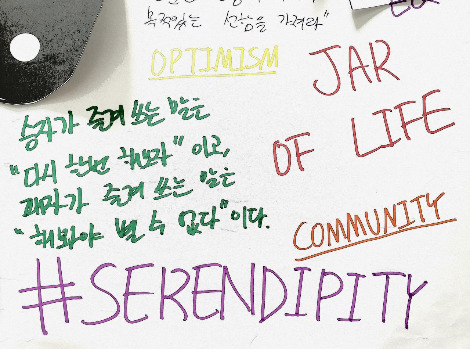 목적있는 선함을 가져라"
EQ
OPTIMISM
JAR
OF LIFE
승자가 즐겨 쓰는 말은
"다시 한번 해보자" 이고,
패자가 즐겨 쓰는 말은
"해봐야 별 수 없다"이다.
COMMUNITY
#SERENDIPITY